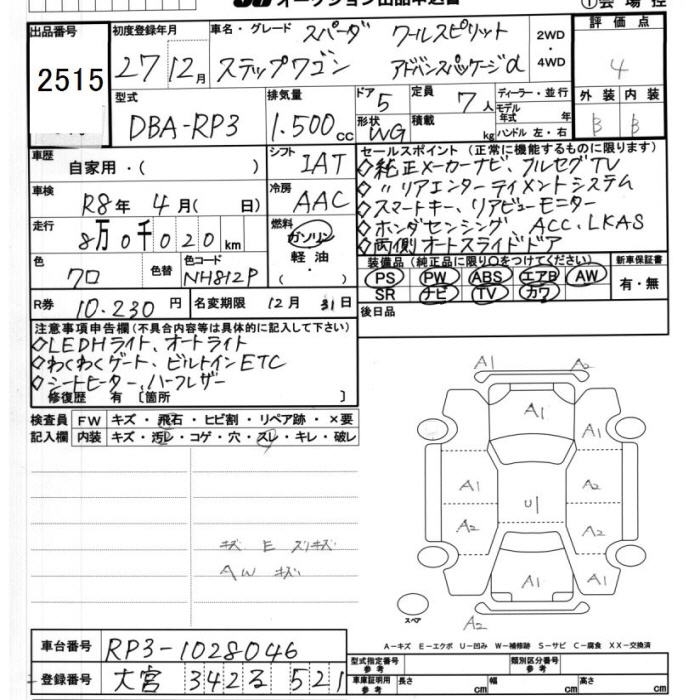 オークション出品申込書
①会場控
出品番号
2515
初度登録年月
27 12月
車名・グレード スパーダ クールスピリット
ステップワゴン アドバンスパッケージα
2WD
・
4WD
評価点
4
外装 内装
B B
型式
DBA-RP3
排気量
1.500cc
ドア 5
形状 WG
定員 7人
積載 kg
ディーラー・並行
モデル年式 年
ハンドル 左・右
車歴
自家用・( )
シフト
IAT
車検
R8年 4月( 日)
冷房
AAC
走行
8万0千020km
燃料
ガソリン
軽油
( ・ )
色
クロ
色替
色コード
NH812P
R券 10.230円
名変期限 12月 31日
セールスポイント (正常に機能するものに限ります)
◇純正メーカーナビ、フルセグTV
◇〃リアエンターテイメントシステム
◇スマートキー、リアビューモニター
◇ホンダセンシング、ACC、LKAS
◇両側オートスライドドア
装備品(純正品に限り○をつけてください)
PS PW ABS エアB AW
SR ナビ TV カワ
新車保証書
有・無
後日品
注意事項申告欄(不具合内容等は具体的に記入して下さい)
◇LEDHライト、オートライト
◇わくわくゲート、ビルトインETC
◇シートヒーター、ハーフレザー
修復歴 有〔箇所 〕
検査員 FW キズ・飛石・ヒビ割・リペア跡・×要
記入欄 内装 キズ・汚レ・コゲ・穴・スレ・キレ・破レ
キズ E スリキズ
AW キズ
A1 A2
A1
A1
A1 A2
U1
A2 A2
A1 A1
A2
スペア
A-キズ E-エクボ U-凹み W-補修跡 S-サビ C-腐食 XX-交換済
車台番号 RP3-1028046
登録番号 大宮 342る 521
型式指定番号 参考
類別区分番号 参考
車庫証明用 参考 長さ cm 幅 cm 高さ cm